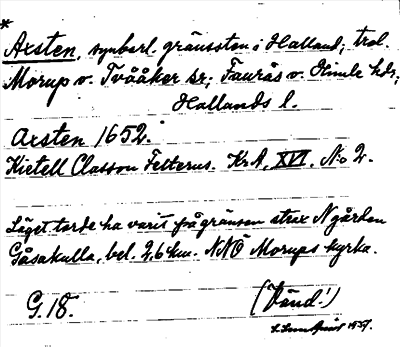 *
Axsten, synbarl. gränssten i Halland; trol.
Morup o. Tvååker sr; Faurås o. Himle hdr,
Hallands l.
Axsten 1652.
Kietell Classon Felterus. KrA, XVI. No 2.
Läget torde ha varit på gränsen strax N gården
Gåsakulla, bel. 2,6 km. NNÖ Morups kyrka.
G. 18. (Vänd!)
1957.